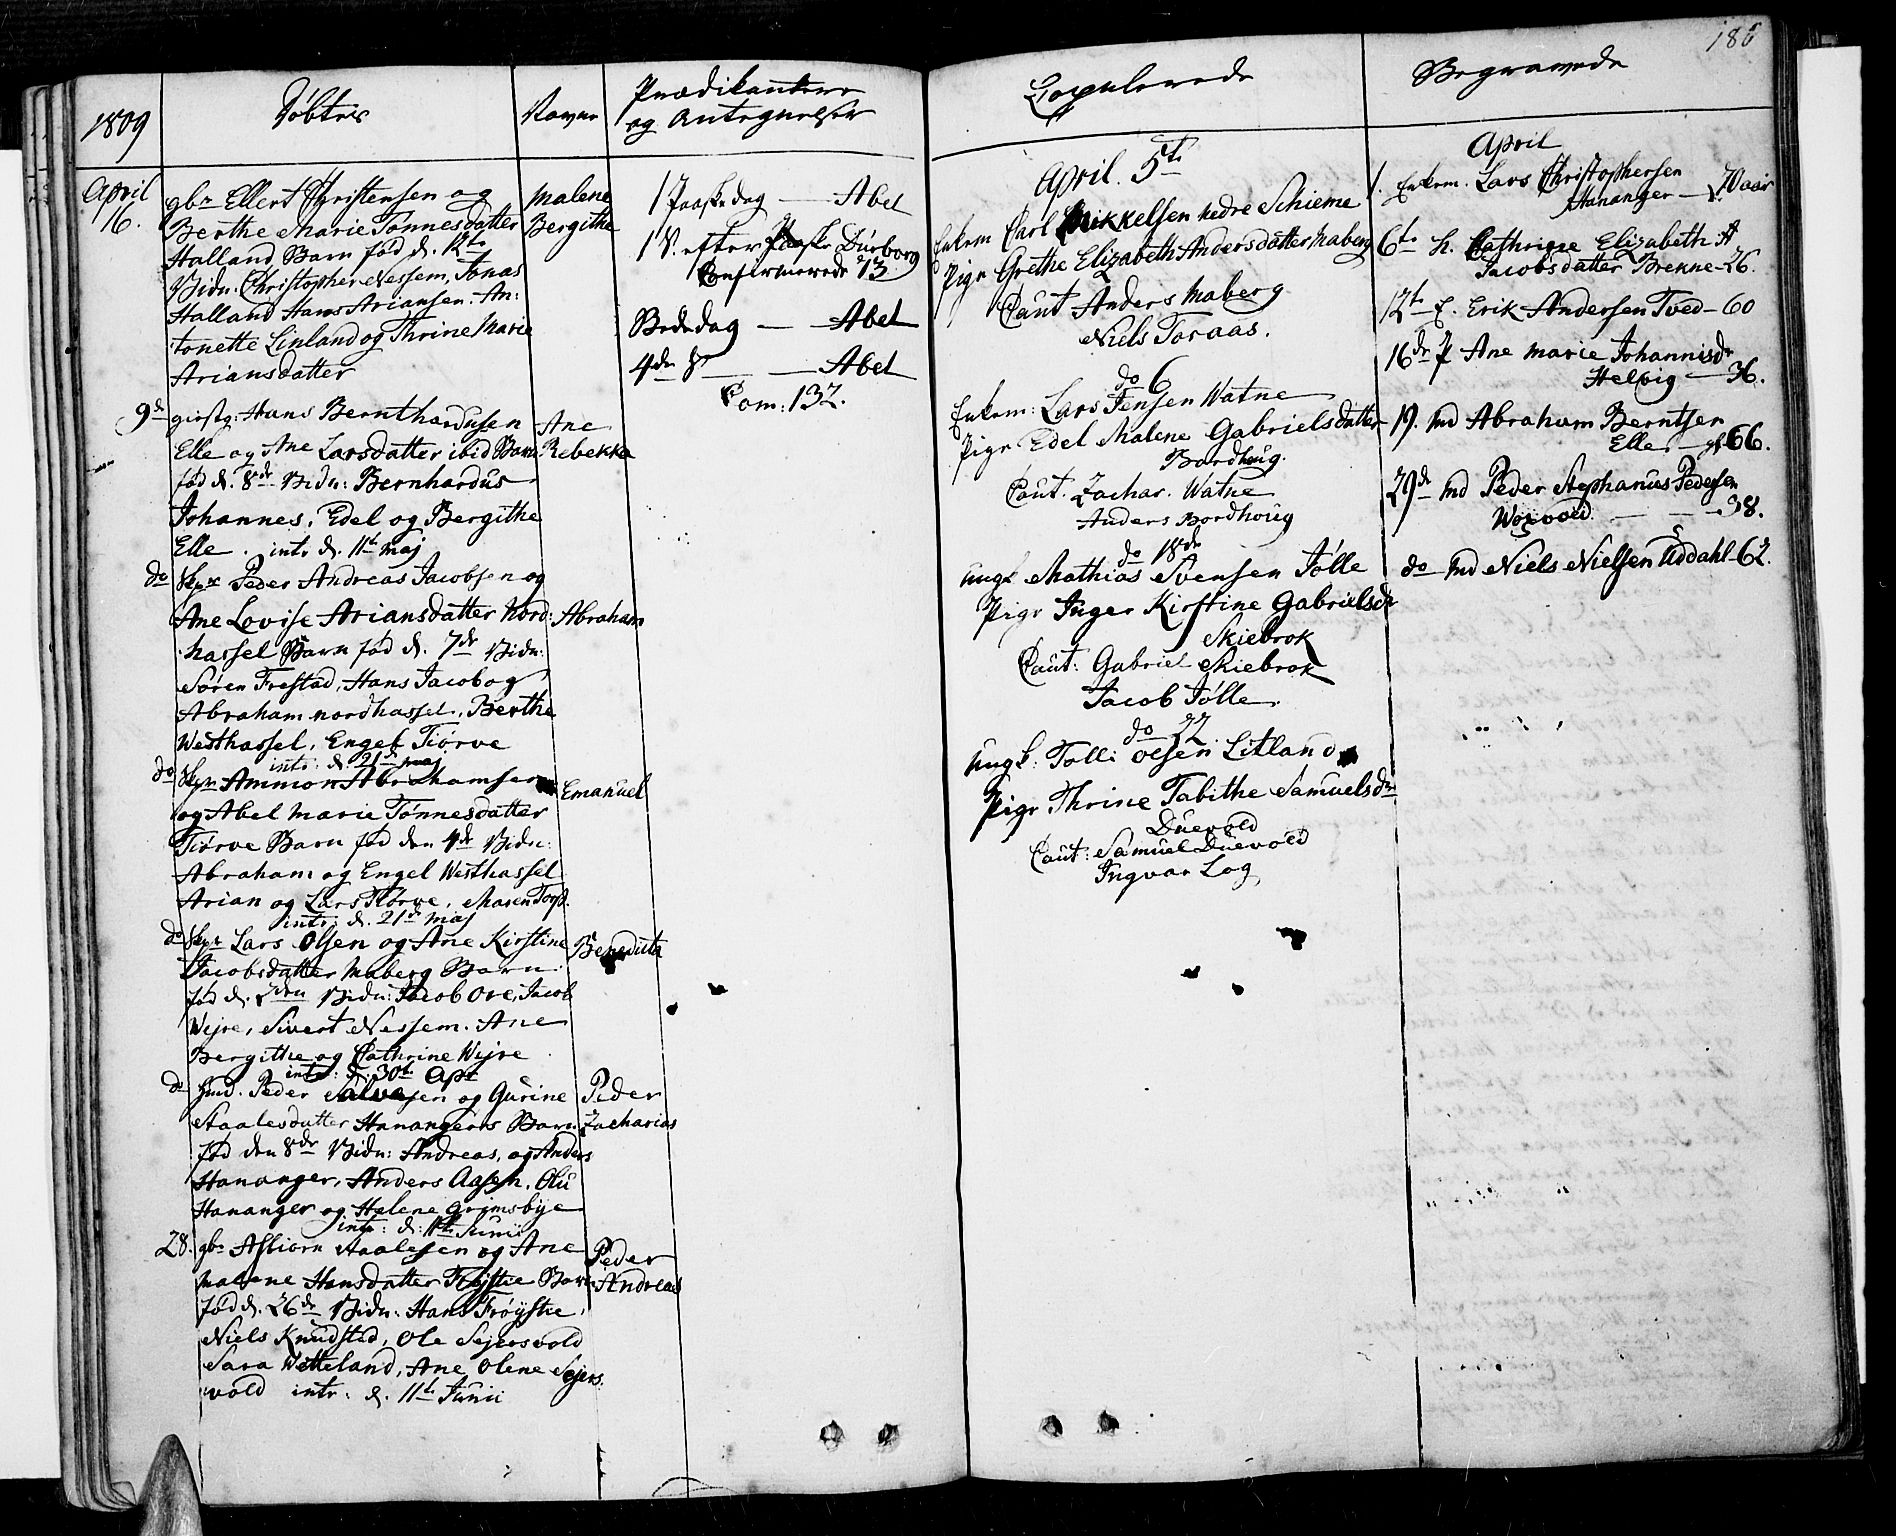 186
1809
Døbte
Navne
Prædikantene
og Antegnelser
Copulerede
Begravede
April
16.
gbr Ellert Christensen og
Berthe Marie Tønnesdatter
Halland Barn fød d. 12te
Vidn. Christopher Nessem, Jonas
Halland Hans Ariansen. An:
tonette Linland og Thrine Marie
Ariansdatter
Malene
Bergithe
9de
Hans Bernthardusen
Elle og Ane Larsdatter ibid Barn
fød d. 8de Vidn: Bernhardus
Johannes, Edel og Bergithe
Elle. intr d. 11te maj
Ane
Rebekka
do Peder Andreas Jacobsen og
Ane Lovise Ariansdatter Nord:
hassel Barn fød d. 7de Vidn:
Søren Frestad, Hans Jacob og
Abraham nordhassel, Berthe
Westhassel, Engel Tiørve
intr: d. 21de maj
Abraham
do Ammon Abrahamsen
og Abel Marie Tønnesdatter
Tiørve Barn fød den 4de Vidn:
Abraham og Engel Westhassel
Arian og Lars Tiørve, Maren
intr: d. 21de maj
Emanuel
do Lars Olsen og Ane Kirstine
Jacobsdatter Maberg Barn
fød d. 2den Vidn: Jacob Ore, Jacob
Wejre, Sivert Nessem. Ane
Bergithe og Cathrine Wejre
intr: d. 30te Apr
Benedicta
do Hmd. Peder Salvesen og Gurine
Staalesdatter Hanangers Barn
fød den 8de Vidn: Andreas, og Anders
Hananger, Anders Aasen, Olu
Hananger og Malene Grimsbye
intr: d: 11te Junii
Peder
Zacharias
28. gbr Asbiørn Staalesen og Ane
Malene Hansdatter Frøjstie Barn
fød d. 26de Vidn: Hans Frøystie,
Niels Knudstad, Ole Sejersvold
Sara Wetteland, Ane Olene Sejers
vold intr: d. 11te Junii
Peder
Andreas
1 Paaskedag — Abel
1 S. efter Paaske Durborg
Confirmerede 13
Bededag — Abel
4de — Abel
Com: 132.
April. 5te
Enkem Carl Mikkelsen nedre Schieme
Pige Grethe Elizabeth Andersdatter Maberg
Caut Anders Maberg
Niels Toraas.
do 6
Enkem: Lars Jensen Watne
Pige Edel Malene Gabrielsdatter
Bordhoug.
Caut. Zachar. Watne
Anders Bordhoug
do 18de
ungk Mathias Svensen Jølle
Pige Inger Kirstine Gabrielsdr
Skiebrok
Caut: Gabriel Skiebrok
Jacob Jølle
do 22
ungk: Tolli Olsen Litland
Pige Thrine Tabithe Samuelsdr
Duevold
Caut: Samuel Duevold
Ingvar Log
April
1. Enkem. Lars Christophersen
Hananger — 70 aar
6te h. Cathrine Elizabeth
Jacobsdatter Brekne — 26.
12te E. Erik Andersen Tved — 60
16de P Ane Marie Johannisdr
Helvig — 36.
19. md Abraham Berntsen
Elle 66.
29de md Peder Stephanus Pedersen
38.
do md Niels Nielsen Uddahl — 62.